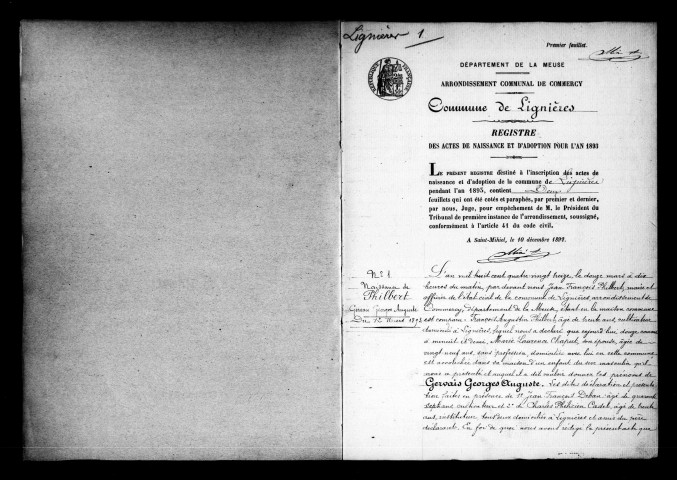 Lignières 1.
Premier feuillet.
DÉPARTEMENT DE LA MEUSE
ARRONDISSEMENT COMMUNAL DE COMMERCY
Commune de Lignières
REGISTRE
DES ACTES DE NAISSANCE ET D'ADOPTION POUR L'AN 1893
LE PRÉSENT REGISTRE destiné à l'inscription des actes de
naissance et d'adoption de la commune de Lignières
pendant l'an 1893, contient Deux
feuillets qui ont été cotés et paraphés, par premier et dernier,
par nous, Juge, pour empêchement de M. le Président du
Tribunal de première instance de l'arrondissement, soussigné,
conformément à l'article 41 du code civil.
A Saint-Mihiel, le 10 décembre 1892.
N° 1
Naissance de
Philbert
Gervais Georges Auguste
Du 12 Mars 1893
L'an mil huit cent quatre vingt treize le douze mars à dix
heures du matin, par devant nous Jean François Philbert, maire et
officier de l'état civil de la commune de Lignières arrondissement de
Commercy, département de la Meuse, étant en la maison commune
est comparu François Augustin Philbert, âgé de trente ans, cultivateur
domicilié à Lignières, lequel nous a déclaré que aujourd'hui douze
à minuit et demi, Marie Laurence Chaput, son épouse, âgée de
vingt neuf ans, sans profession, domiciliée avec lui en cette commune
est accouchée dans sa maison d'un enfant du sexe masculin qu'il
nous a présenté et auquel il a dit vouloir donner les prénoms de
Gervais Georges Auguste. Les dites déclaration et présenta
tion faites en présence de 1° Jean François Deban âgé de quarante
ans, cultivateur et 2° de Charles âgé de trente
ans, instituteur tous deux domiciliés à Lignières et amis du père
déclarant. En foi de quoi nous avons rédigé le présent acte que